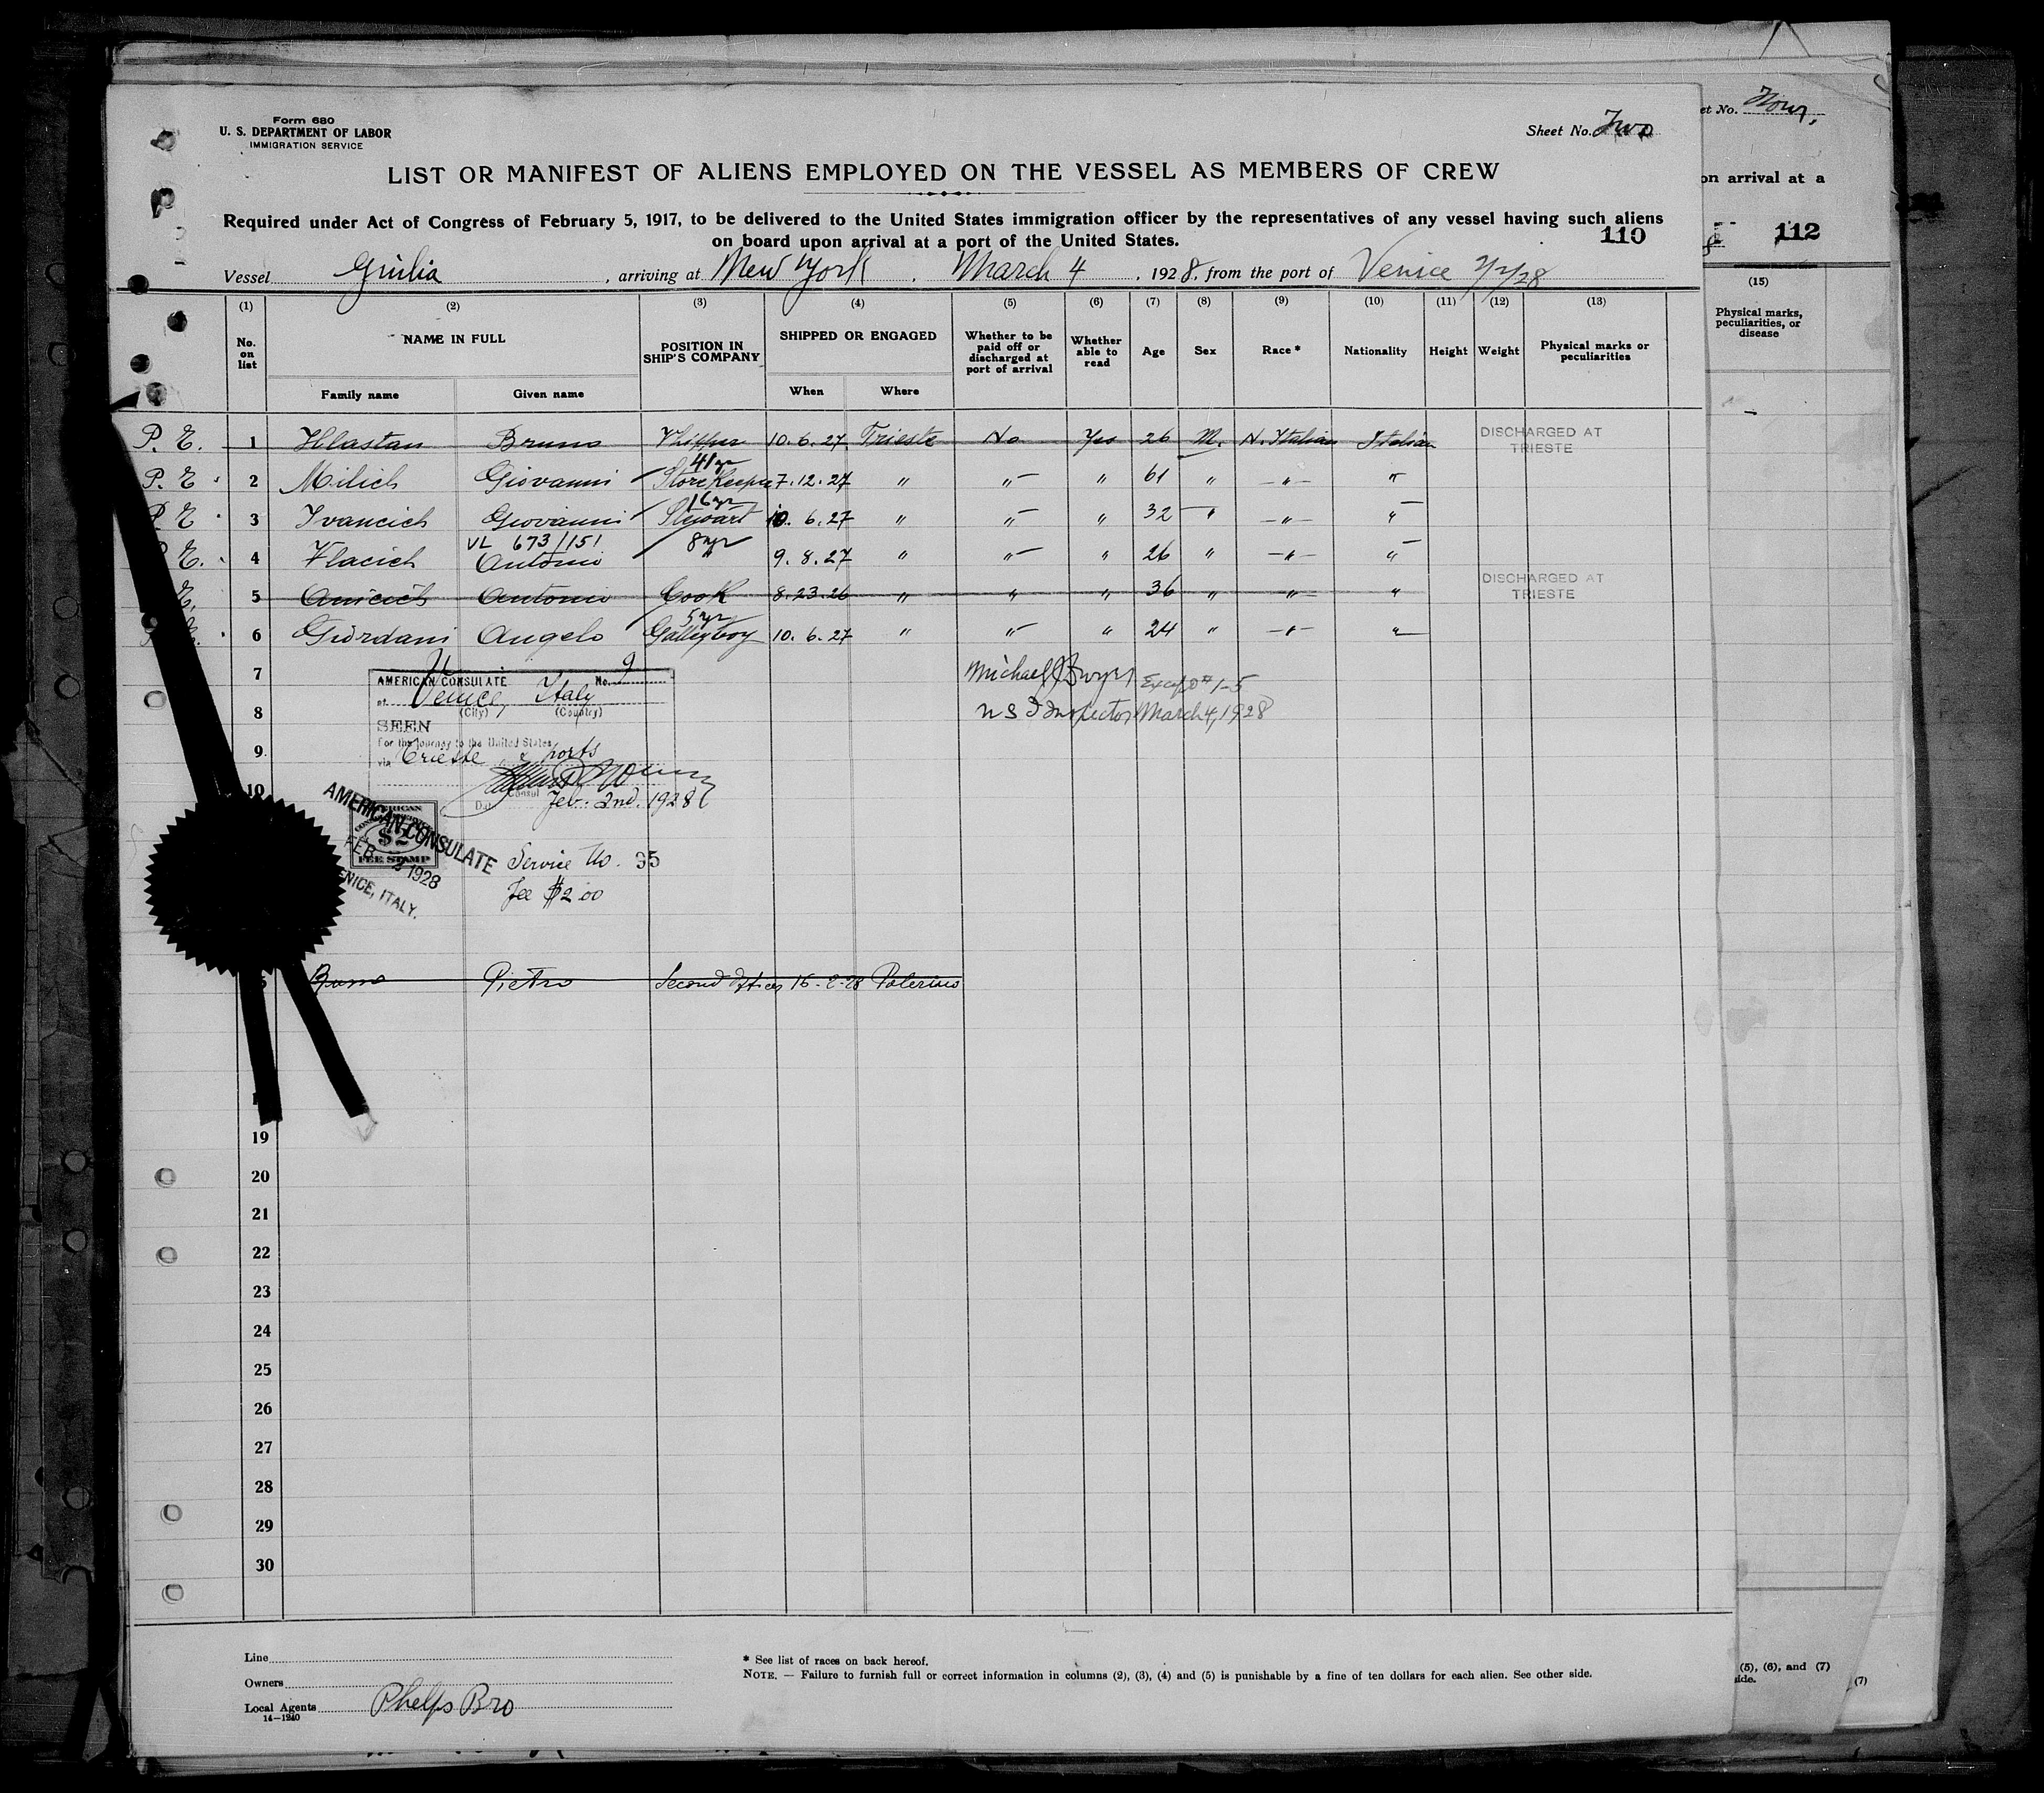 Form 680
U. S. DEPARTMENT OF LABOR
IMMIGRATION SERVICE
Sheet No. Two
LIST OR MANIFEST OF ALIENS EMPLOYED ON THE VESSEL AS MEMBERS OF CREW
Required under Act of Congress of February 5, 1917, to be delivered to the United States immigration officer by the representatives of any vessel having such aliens
on board upon arrival at a port of the United States.
110
Vessel Giulia, arriving at New York, March 4, 1928, from the port of Venice 2/2/28
(1) (2) (3) (4) (5) (6) (7) (8) (9) (10) (11) (12) (13)
No. on list
NAME IN FULL
Family name
Given name
POSITION IN SHIP'S COMPANY
SHIPPED OR ENGAGED
When
Where
Whether to be paid off or discharged at port of arrival
Whether able to read
Age
Sex
Race *
Nationality
Height
Weight
Physical marks or peculiarities
P. E. 1 Hlastan Bruno 10. 6. 27 Trieste No Yes 26 M. N. Italian Italian DISCHARGED AT TRIESTE
41 yr
P. E 2 Milich Giovanni Store Keeper 7. 12. 27 " " " 61 " " "
16 yr
P. E 3 Ivancich Giovanni Stewart 10. 6. 27 " " " 32 " " "
VL 673/151 8 yr
E. 4 Vlacich Antonio " 9. 8. 27 " " " 26 " " "
E. 5 Anicich Antonio Cook 8. 23. 26 " " " 36 " " " DISCHARGED AT TRIESTE
5 yr
6 Giordani Angelo Galleyboy 10. 6. 27 " " " 24 " " "
7
Michael J Dwyer Except # 1-5
8
U S I Inspector March 4, 1928
AMERICAN CONSULATE No. 9
at Venice, Italy
(City) (Country)
SEEN
For the journey to the United States
via Trieste & ports
9
Consul
Date Feb. 2nd. 1928
10
AMERICAN CONSULATE
FEB 2 1928
VENICE, ITALY.
AMERICAN
$2
FEE STAMP
Service No. 35
Fee $2.00
Pietro Second Officer 15-2-28 Palermo
19
20
21
22
23
24
25
26
27
28
29
30
Line
Owners
Local Agents Phelps Bro
14-1240
* See list of races on back hereof.
NOTE. — Failure to furnish full or correct information in columns (2), (3), (4) and (5) is punishable by a fine of ten dollars for each alien. See other side.
et No. Four,
on arrival at a
112
(15)
Physical marks, peculiarities, or disease
(5), (6), and (7)
side.
(7)